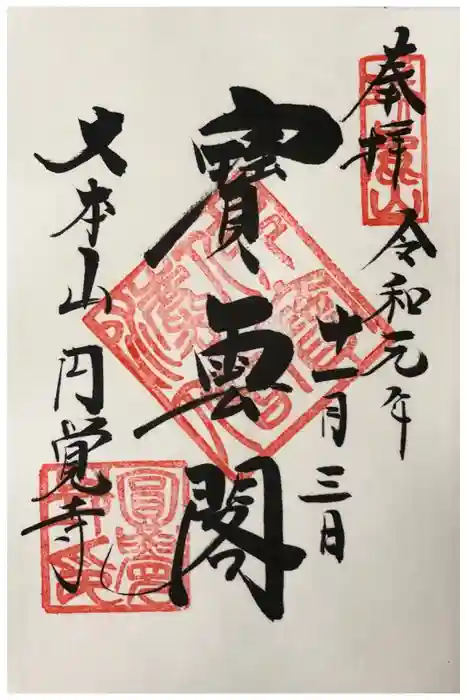 奉拝
令和元年
十一月三日
寶雲閣
大本山円覚寺